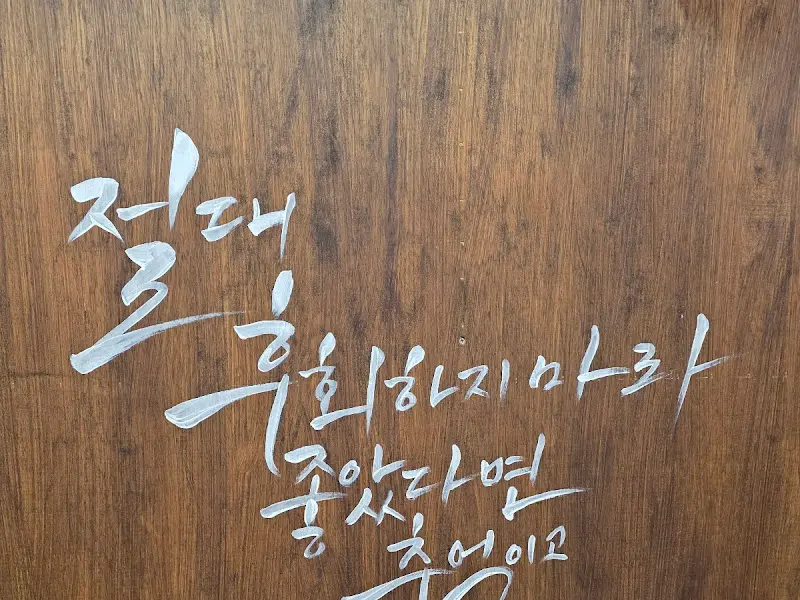 절대
후회하지마라
좋았다면
추억이고